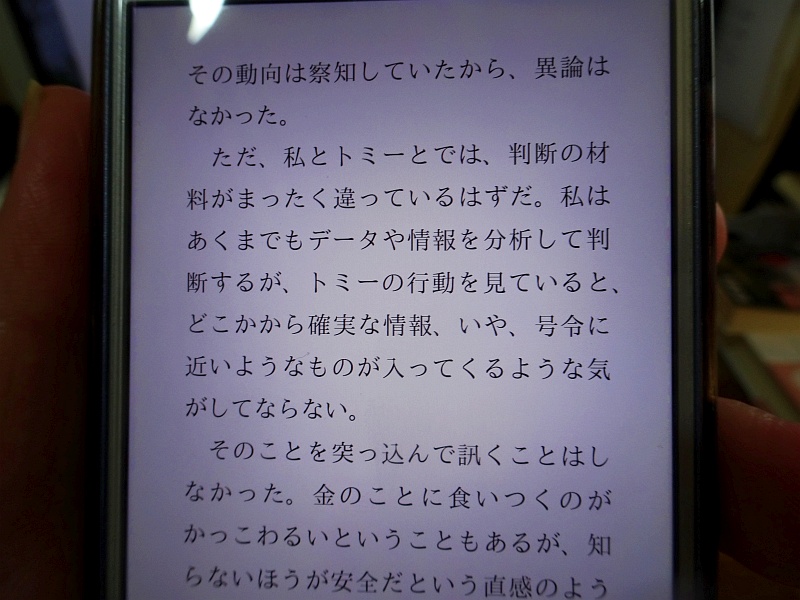 その動向は察知していたから、異論は
なかった。
ただ、私とトミーとでは、判断の材
料がまったく違っているはずだ。私は
あくまでもデータや情報を分析して判
断するが、トミーの行動を見ていると、
どこかから確実な情報、いや、号令に
近いようなものが入ってくるような気
がしてならない。
そのことを突っ込んで訊くことはし
なかった。金のことに食いつくのが
かっこわるいということもあるが、知
らないほうが安全だという直感のよう